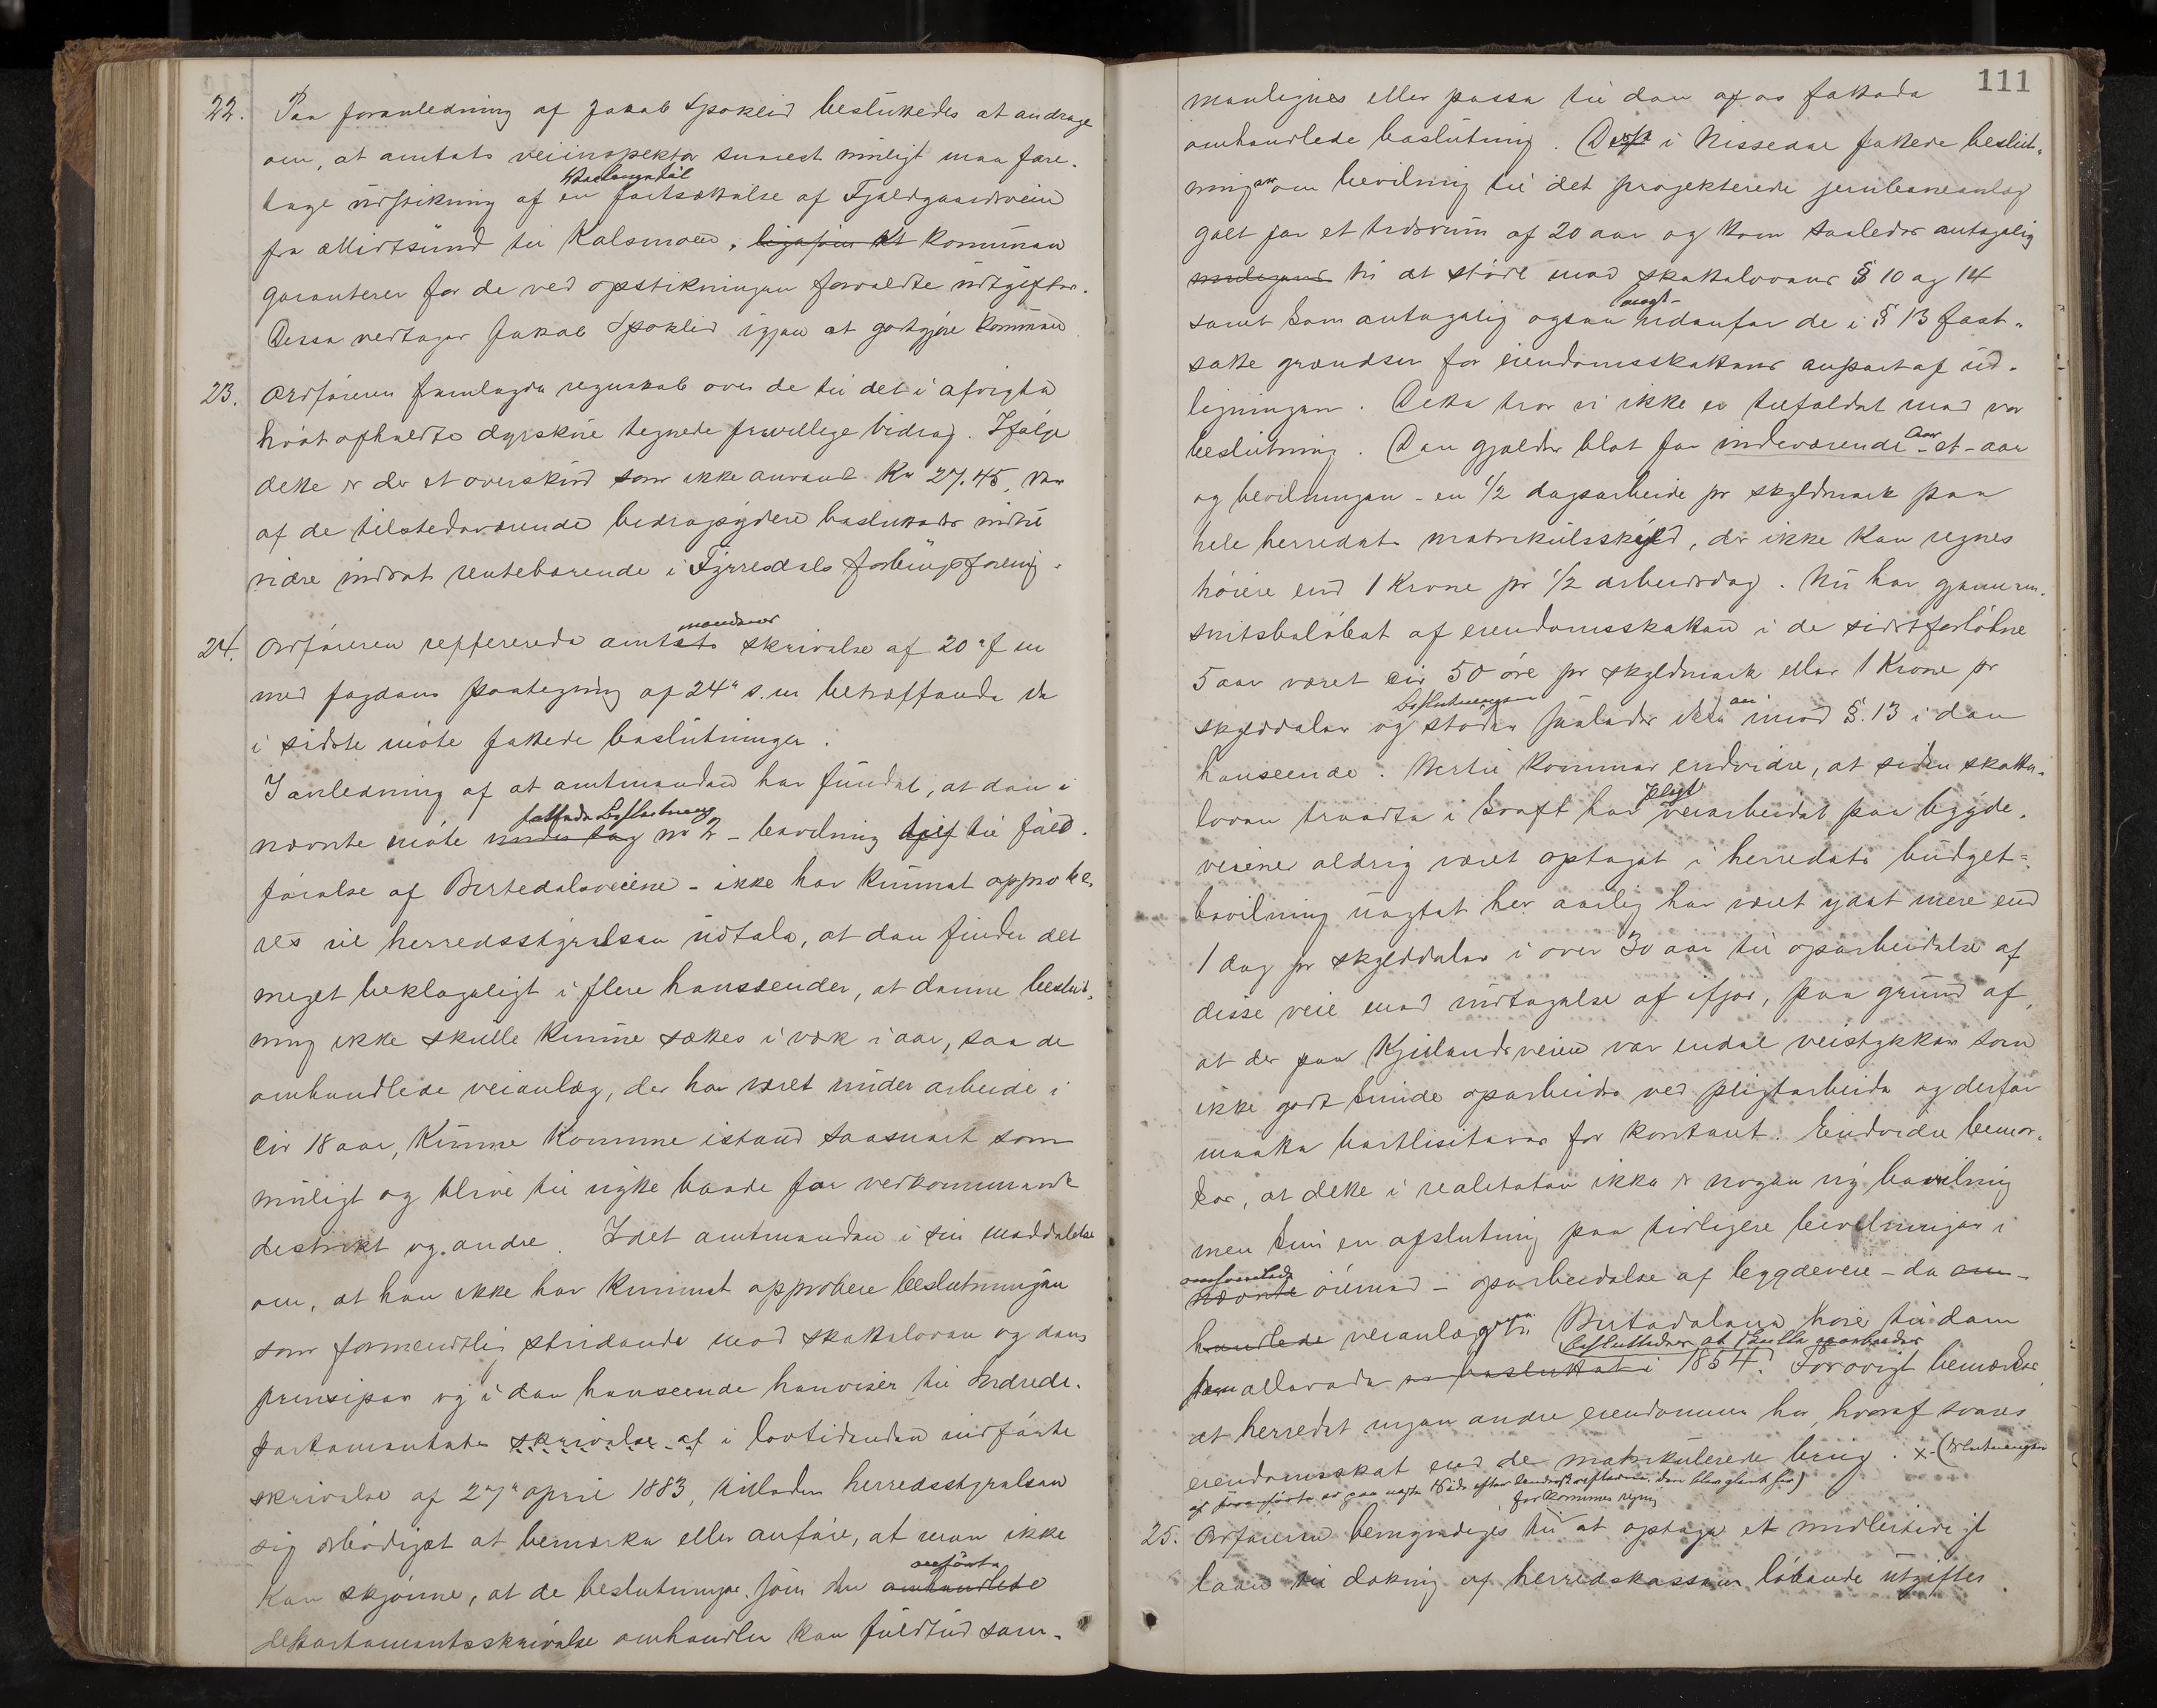 22. Paa foranledning af Jakob Spokleid besluttedes at andrage
om, at amtets veiinspektør snarest muligt maa fore-
tage udstikning af en fortsættelse af Fjeldgaardsveien
fra Midtsund til Kalsmoen, kommunen
garanterer for de ved opstikningen forvoldte udgifter.
Disse vedtager Jakob Spoklid igjen at godtgjøre kommunen
23. Ordføreren fremlagde regnskab over de til det i afvigte
høst afholdte dyrskue tegnede frivillige bidrag. Ifølge
dette er der et overskud som ikke anvendt Kr 27.45, der
af de tilstedeværende bidragsydere besluttedes indtil
videre indsat rentebærende i Fyrresdals forbrugsforening.
24. Ordføreren reffererede amtets
mandens
skrivelse af 20 f m
med fogdens paategning af 24 s.m betræffende de
i sidste møte fattede beslutninger.
I anledning af at amtmanden har fundet, at den i
fattede Beslutning
nævnte møte under sag no 2 - bevilning til fuld-
førelse af Birtedalsveiene - ikke har kunnet approbe-
res vil herredsstyrelsen udtale, at den finder det
meget beklageligt i flere henseender, at denne beslut-
ning ikke skulle kunne sættes i værk i aar, saa de
omhandlede veianlæg, der har været under arbeide i
cir 18 aar, kunne komme istand saasnart som
muligt og blive til nytte baade for vedkommende
distrikt og andre. Idet amtmanden i sin meddelelse
om, at han ikke har kunnet approbere beslutningen
som formentlig stridende mod skatteloven og dens
prinsiper og i den henseende henviser til Indrede-
partementets skrivelse af i lovtidenden indførte
skrivelse af 27 april 1883, tillader herredsstyrelsen
sig ærbødigst at bemærke eller anføre, at man ikke
anførte
kan skjønne, at de beslutninger som den omhandlede
departementsskrivelse omhandler kan fuldtud sam-
111
menlignes eller passe til den af os fattede
omhandlede beslutning. Den i Nissedal fattede beslut-
ning om bevilning til det projekterede jernbaneanlæg
galt for et tidsrum af 20 aar og kom saaledes antagelig
til at støde mod skattelovens § 10 og 14
samt kom antagelig ogsaa udenfor de i § 13 fast-
satte grændser for eiendomsskattens anpart af ud-
ligningen. Dette tror vi ikke er tilfældet med vor
beslutning. Den gjælder blot for indeværende - et - aar
og bevilningen - en 1/2 dagsarbeide pr skyldmark paa
hele herredets matrikulskyld, der ikke kan regnes
høiere end 1 Krone pr 1/2 arbeidsdag. Nu har gjennem-
snitsbeløbet af eiendomsskatten i de sidstforløbne
5 aar været cir 50 øre pr skyldmark eller 1 Krone pr
Beslutningen
skylddaler og støder saaledes ikke mod §. 13 i den
henseende. Hertil kommer endvidere, at siden skatte-
pligt
loven traadte i kraft har veiarbeidet paa bygde-
veiene aldrig været optaget i herredets budget-
bevilning uagtet her aarlig har været ydet mere end
1 dag pr skylddaler i over 30 aar til oparbeidelse af
disse veie med undtagelse af ifjor, paa grund af,
at der paa Kjeilandsveien var endel veistykker som
ikke godt kunde oparbeides ved pligtarbeide og derfor
maatte bortlisiteres for kontant. Endvidere bemær-
kes, at dette i realiteten ikke er nogen ny bevilning
men kun en afslutning paa tidligere bevilninger i
omhandlede
nævnte øiemed - oparbeidelse af bygdeveie - da om-
handlede veianlæg i Birtedalene hører til dem
besluttedes at skulle oparbeides
som allerede i 1854. Forøvrigt bemærkes
at herredet ingen andre eiendomme har, hvoraf svares
eiendomsskat end de matrikulerede brug. x-(Slutningen
for kommunens regning
25. Ordføreren bemyndiges til at optage et midlertidigt
laan til dækning af herredskassens løbende utgifter